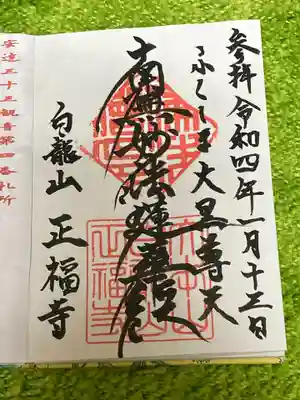 参拝令和四年一月十三日
ふくしま大黒尊天
南無妙法蓮華
白龍山 正福寺
安達三十三観音第四番札所